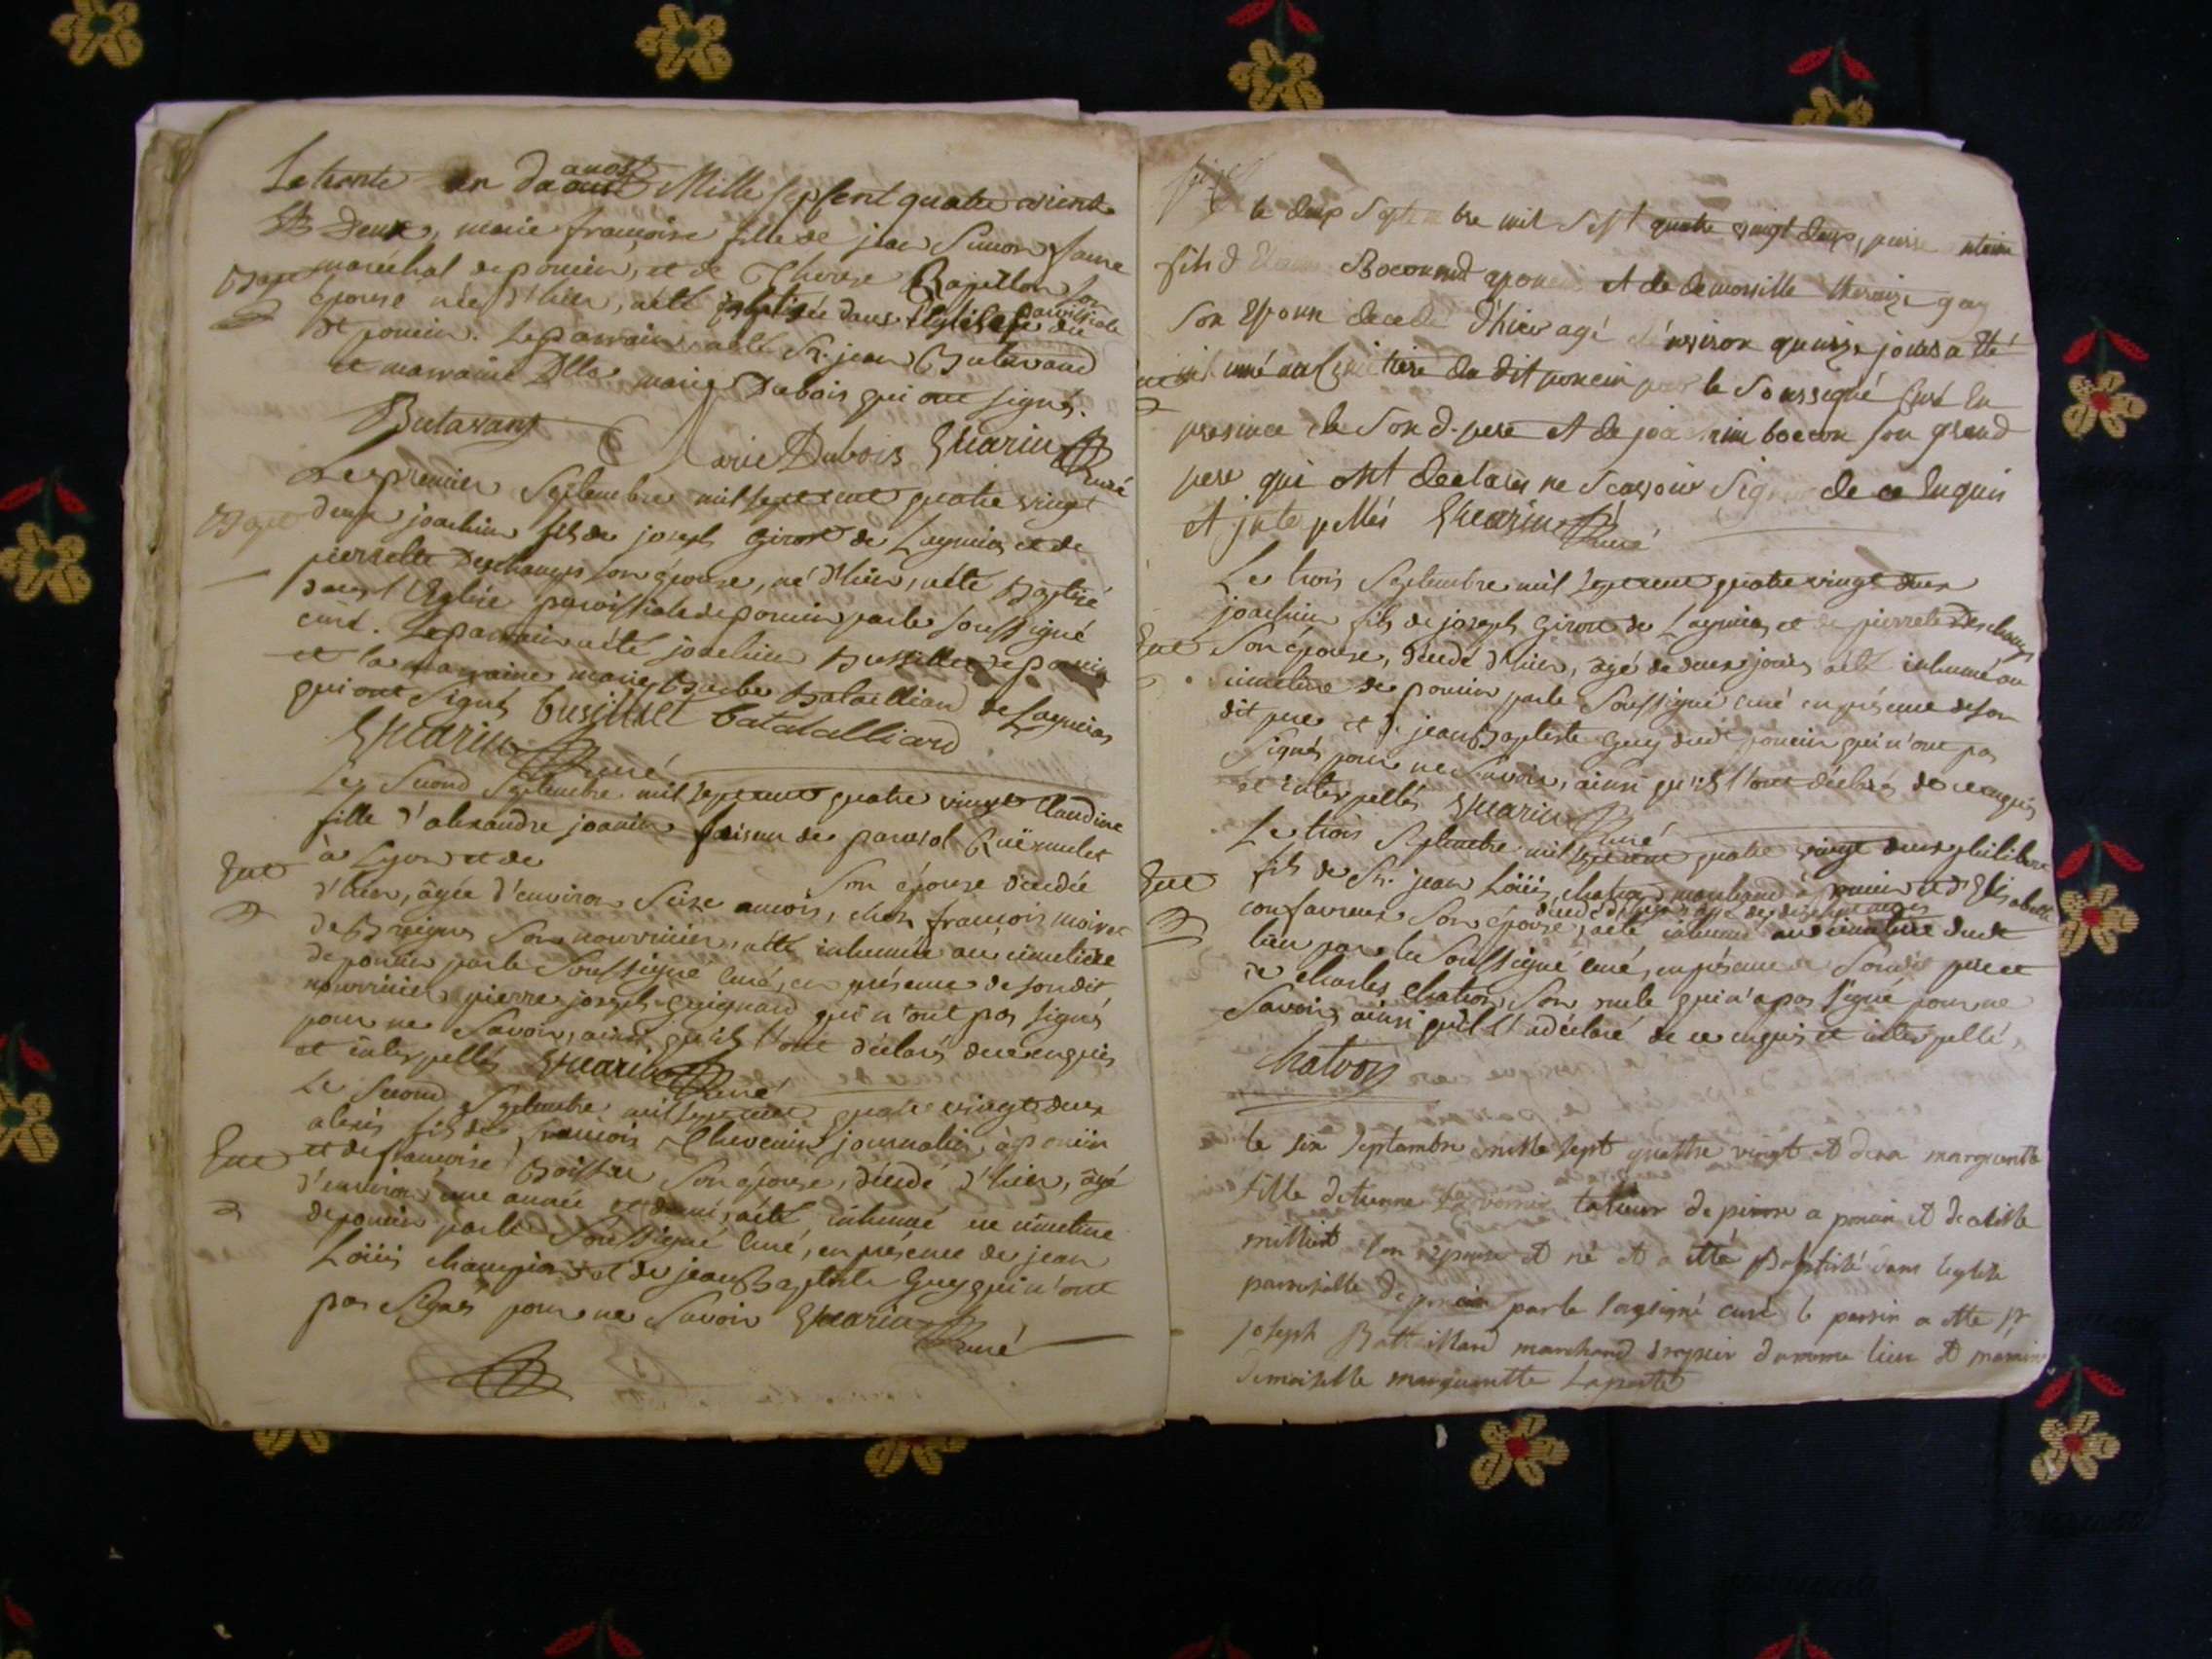 Le trente un daoust aoust Mille sept sent quatre vients
Et Deux, marie françoise fille de jean Simon faure
Bap. maréchal de poncin, et de Therese Ravillon son
Epouse née d'hier, a été baptisée dans l'église paroissiale du
dt poncin. Le parrain a été Sr. jean Butavand
et marraine Dlle marie Dubois qui ont signés.
Butavant Marie Dubois Guarin Curé
Le premier Septembre mil sept cent quatre vingt
Bap. deux joachim fils de joseph Giron de Lagnieu et de
pierrette Deschamps son épouse, né d'hier, a été baptisé
dans l'Eglise paroissiale de poncin par le soussigné
curé. Le parrain a été joachim Bussillet de poncin
et la marraine marie Barbe Bataillard de Lagnieu
qui ont signés busillet bataalliard
Guarin Curé
Le Second Septembre mil sept cent quatre vingt Claudine
fille d'alexandre joanin faiseur de parasol Rüe mulet
Ent à Lyon et de
son épouse décédée
d'hier, âgée d'environ Seize a mois, chez françois moiret
de Breignes Son nourricier, a été inhumée au cimetière
de poncin par le Soussigné Curé, en présence de son dit
nourricier pierre joseph Guignard qui n'ont pas signés
pour ne Savoir, ainsi qu'ils l'ont déclarés de ce enquis
et interpellés Guarin Curé
Le Second Septembre mil sept cent quatre vingt deux
alexis fils de françois Thevenin journalier à poncin
Ent et de françoise Boissu Son épouse, décédé d'hier, âgé
d'environ une année et demi, a été inhumé au cimetière
de poncin par le Soussigné Curé, en présence de jean
Loüis champion et de jean Baptiste Guy qui n'ont
pas Signés pour ne Savoir Guarin Curé
le deux Septembre mil Sept quatre vingt deux, pierre antoine
fils d Boconnod a poncin et de demoiselle theraize gay
Son Epouse decedé d'hier agé d'environ quinze jours a Eté
inhumé au Cimitiere du dit poncin par le Soussigné Curé En
presence de Son d. pere et de joachim bocon son grand
pere qui ont declarés ne Scavoir Signer de ce Enquis
et jnterpellés Guarin Curé
Le trois Septembre mil sept cent quatre vingt deux
joachim fils de joseph Giron de Lagnieu et de pierrete Deschamps
Ent Son épouse, décédé d'hier, âgé de deux jours a été inhumé au
cimetière de poncin par le Soussigné curé en présence de son
dit pere et de jean Baptiste Guy dudt poncin qui n'ont pas
Signés pour ne Savoir, ainsi qu'ils l'ont déclarés de ce enquis
et interpellés Guarin Curé
Le trois Septembre mil sept cent quatre vingt deux philibert
Ent fils de Sr. jean Loüis chatron marchand à poncin et d'Elisabeth
décédé d'hier âgé de mois
confavreux Son épouse, a été inhumé au cimetière dudt
lieu par le Soussigné Curé, en présence de Son dit pere et
de charles chatron Son oncle qui n'a pas Signé pour ne
Savoir ainsi qu'il l'a déclaré de ce enquis et interpellé
Chatron
le six Septambre mille sept quattre vingt et deux margueritte
fille detienne tallieur de pierre a poncin et de
milliet son epouse et né et a etté Baptisé dans leglise
parroisialle de poncin par le sousigné curé le parrin a etté sr
joseph Battillard marchand drapier du meme lieu et marraine
demoiselle marguerite Laporte